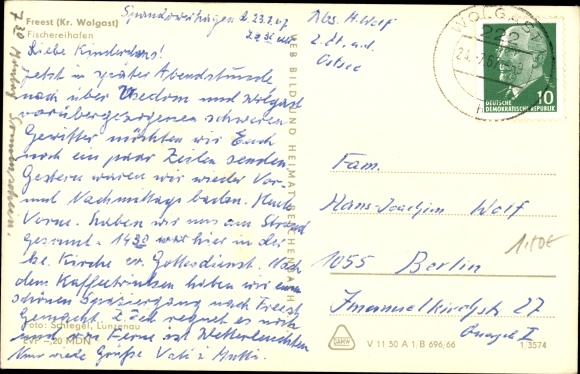 Freest (Kr. Wolgast)
Fischereihafen
Spandowerhagen d. 23.7.67
Abs. H. Wolf
z. Zt. a. d.
Ostsee
WOLGAST
222
10
DEUTSCHE
DEMOKRATISCHE REPUBLIK
Liebe Kinder
Jetzt in später Abendstunde
nach über Usedom und Wolgast
vorübergezogenen schweren
Gewitter möchten wir Euch
noch ein paar Zeilen senden.
Gestern waren wir wieder Vor-
und Nachmittags baden. Heute
Vorm. haben wir uns am Strand
gesonnt. 14 30 war hier in der
Kirche ev. Gottesdienst. Nach
dem Kaffeetrinken haben wir einen
schönen Spaziergang nach Freest
gemacht. Z. Zeit regnet es noch
und in der Ferne ist Wetterleuchten
Nun viele Grüße Vati & Mutti.
7 30 Montag Sonnenschein.
Foto: Schlegel, Lunzenau
EVP -,20 MDN
VEB BILD UND HEIMAT REICHENBACH
Fam.
Hans-Joachim Wolf
1055 Berlin
Immanuelkirchstr. 27
1.50€
V 11 50 A 1/B 696/66
1/3574